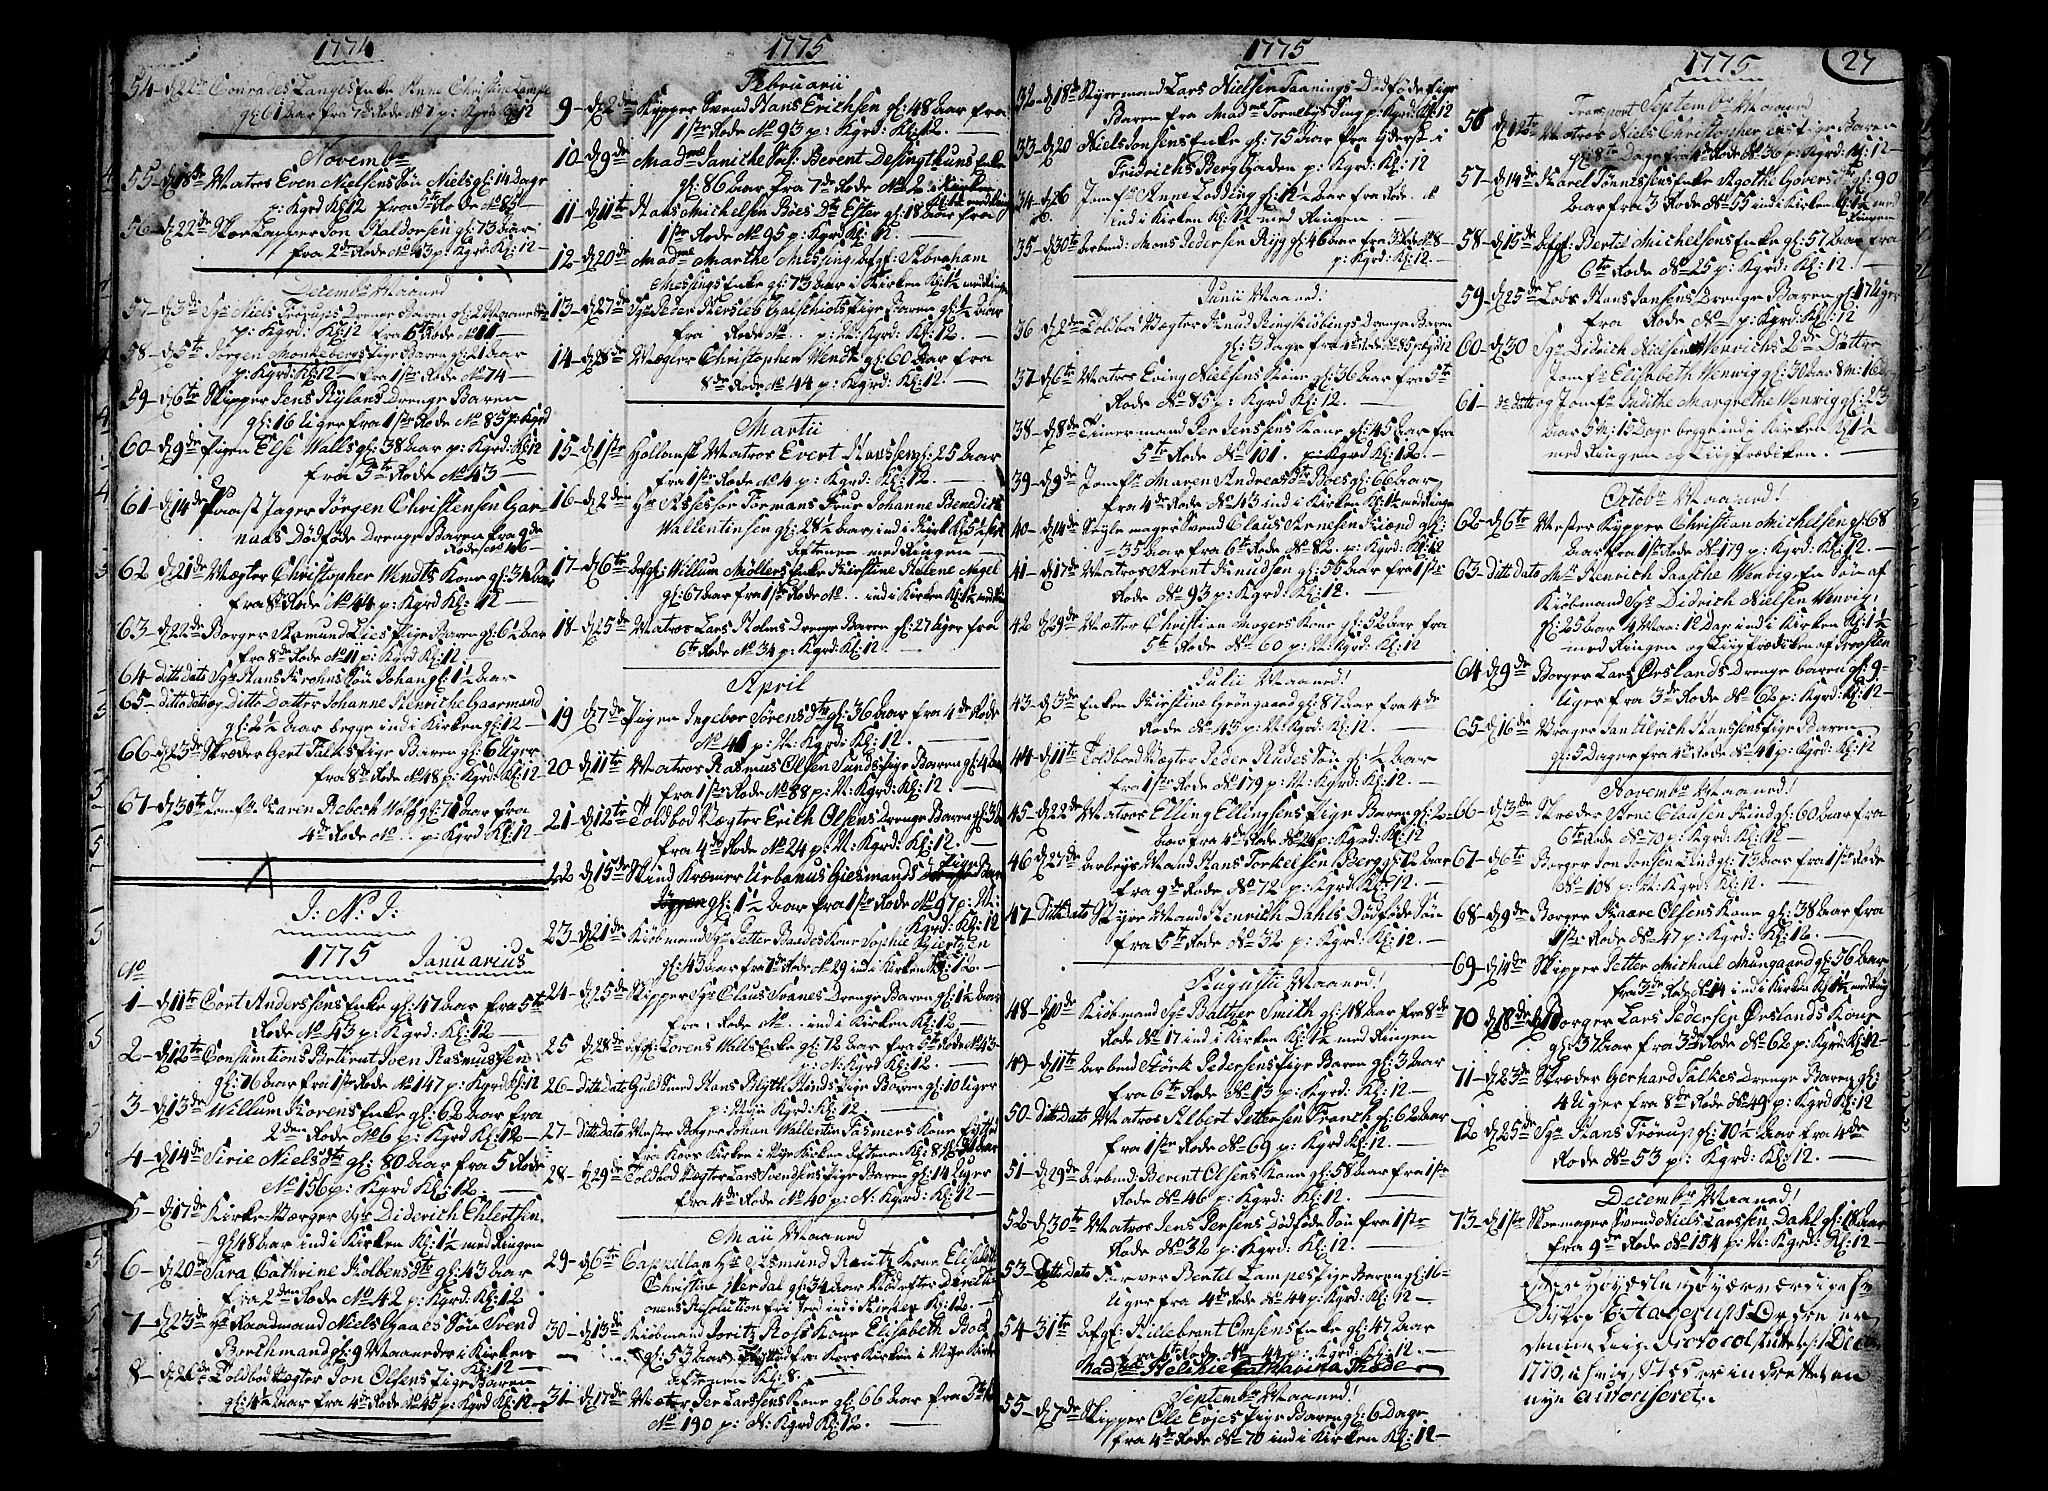 1774
54 - d. 22de Conrades Langes Enke Anne Christine Lampe
gl: 61 aar fra 7de Rode No 1 p: Kgrd Kl 12
Novembr
55 - d. 18de Matros Even Nielsens Søn Niels gl: 14 Dage
p: Kgrd Kl 12 fra 5te Rode No 85
56 - d. 22de Skoe Lapper Jon Haldorsen gl: 73 aar
fra 2de Rode No 43 p: Kgrd: Kl: 12
Decembr Maaned
57 - d. 3de Sgr Niels Trørups Drenge Baren gl: 2 Maaneder
p: Kgrd: Kl 12 fra 6te Rode No 11
58 - d. 5te Jørgen Monkebergs Pige Baren gl: 21 aar
p: Kgrd: Kl: 12 fra 1ste Rode No 74
59 - d. 6te Skipper Jens Rylans Drenge Baren
gl: 16 Uger fra 1ste Rode No 85 p: Kgrd
60 - d. 9de Pigen Else Walls gl: 38 aar p: Kgrd: Kl: 12
fra 5te Rode No 43
61 - d. 14de Paast Jager Jørgen Christensen Gar-
naas Dødføde Drenge Baren fra 9de
Rode No 46
62 d. 21de Wægter Christopher Wendts Kone gl: 34 aar
fra 8de Rode No 44 p: Kgrd: Kl: 12
63 - d. 22de Borger Asmund Lies Pige Baren gl: 6½ aar
fra 8de Rode No 11 p: Kgrd Kl: 12
64 - ditto dato Sgr Hans Krohns Søn Johan gl: 1½ aar
65 - ditto dato og Ditto Datter Johanne Henriche Gaarmand
gl: 2½ aar begge ind i Kirken Kl: 12
66 - d. 23de Skræder Gert Falks Pige Baren gl: 6 Uger
fra 8de Rode No 48 p: Kgrd: Kl: 12
67 - d. 30te Jomfr Karen Rebech Wold gl: 71 aar fra
4de Rode No .. p: Kgrd Kl: 12
J: N: J:
1775 Januarius
No
1 - d. 11te Cort Anderssens Enke gl: 47 aar fra 5te
Rode No 43 p: Kgrd: Kl: 12
2 - d. 12te Consumtions Betient Iven Rasmussen
gl: 76 aar fra 1ste Rode No 147 p: Kgrd Kl: 12
3 - d. 13de Willum Horens Enke gl: 62 aar fra
2den Rode No 6 p: Kgrd Kl: 12
4 - d. 14de Sirie Nielsdtr gl: 80 aar fra 5 Rode
No 156 p: Kgrd Kl: 12
5 - d. 17de Kirke Værger Sgr Diderich Ehlertsen
gl: 48 aar ind i Kirken Kl: 1½ med Ringen
6 - d. 20de Sara Cathrine Kolbensdtr gl: 43 aar
fra 2den Rode No 42 p: Kgrd: Kl: 12
7 - d. 23de Hr Raadmand Niels Gaaes Søn Svend
Borthmand gl: 9 Maaneder i Kirken
Kl: 12
8 - d. 26de Toldbod Wægter Jon Olsens Pige Baren
gl: 1½ aar fra 4de Rode No 45 p: Kgrd: Kl: 12
1775
Februarii
9 - d. 2de Kypper Svend Hans Erichsen gl: 48 aar fra
1ste Rode No 93 p: Kgrd: Kl: 12
10 - d. 9de Madme Saniche Sal: Berent Desingthuns Enke
gl: 86 aar fra 7de Rode No 2 i Kirken
Kl: 1½ med Ring
11 d. 11te Hans Michelsen Boes Dtr Ester gl: 18 aar fra
1ste Rode No 95 p: Kgrd Kl: 12
12 - d. 20de Madme Marthe Mesing afgl: Abraham
Mesings Enke gl: 73 aar i Kirken Kl: 1½ med Ringen
13 - d. 27de Sgr Peder Herslebs Galschiots Pige Baren gl: ½ aar
fra Rode No .. p: N: Kgrd: Kl: 12
14 - d. 28de Mægler Christopher Wendt gl: 60 aar fra
8de Rode No 44 p: Kgrd: Kl: 12
Martii
15 - d. 1ste Hollansk Matros Evert Hanssen gl: 25 aar
fra 1ste Rode No 4 p: Kgrd: Kl: 12
16 - d. 2den Hr Assessor Formans Frue Johanne Benedicte
Wallentinsen gl: 28½ aar ind i Kirken Kl: 5½ om
aftenen med Ringen
17 - d. 6te Afgl: Willum Møllers Enke Kirstine Helene Nagel
gl: 67 aar fra 1ste Rode No .. ind i Kirken Kl: 1½ med Ring
18 - d. 25de Matros Lars Holms Drenge Baren gl: 27 Uger fra
6te Rode No 34 p: Kgrd: Kl: 12
April
19 d. 7de Pigen Ingebor Sørensdtr gl: 36 aar fra 4de Rode
No 41 p: N: Kgrd: Kl: 12
20 - d. 11te Matros Rasmus Olsen Sunds Pige Baren gl: 4 aar
fra 1ste Rode No 88 p: N: Kgrd: Kl: 12
21 - d. 12te Toldbod Vægter Erich Olsens Drenge Baren gl: 3½
fra 4de Rode No 24 p: N: Kgrd: Kl: 12
22 d. 15de Skind Kræmer Urbanus Giesmands Pige Baren
gl: 1½ aar fra 1ste Rode No 97 p: N:
Kgrd: Kl: 12
23 - d. 21de Kiøbmand Sgr Petter Baades Kone Sophie Kiertzen
gl: 43 aar fra 7de Rode No 29 ind i Kirken Kl: 12
24 - d. 25de Skipper Sgr Claus Svanes Drenge Baren gl: 1½ aar
fra Rode No .. ind i Kirken Kl: 12
25 d. 28de Afgl: Lorens Walls Enke gl: 72 aar fra 5te Rode No 43
p: N: Kgrd Kl: 12
26 - Ditto Dato Guld Smed Hans Blyth Hinds Pige Baren gl: 10 Uger
p: Nye Kgrd: Kl: 12
27 - Ditto Dato Mester Bøger Johan Wallentin Fismers Kone
fra Kors Kirken i Nye Kirken aftenen Kl: 8
28 - d. 29de Toldbod Wægter Lars Svendsens Pige Baren gl: 14 Uger
fra 4de Rode No 40 p: N: Kgrd: Kl: 12
Maii Maaned
29 - d. 6te Cappellan Hr Asmund Rautz Kone Elisabeth
Christine Merdal gl: 34 aar
onens Resolution fri Jord ind i Kirken Kl: 12
30 - d. 13de Kiøbmand Joritz Ross Kone Elisabeth Bock
gl: 53 aar fra Kors Kirken i Nye Kirken
aftenen Kl: 8
31 - d. 17de Mater Per Larssens Kone gl: 66 aar fra 5te
No 190 p: N: Kgrd Kl: 12
1775
32 - d. 18de Styrmand Lars Nielsen Taanings Dødføde Pige
Baren fra Madme Tornebys Ting p: Kgrd: Kl: 12
33 - d. 20 Niels Jonsens Enke gl: 75 aar fra Yderst i
Fridrichs Berg Gaden p: Kgrd: Kl: 12
34 - d. 26 Jomfr Anne Lodding gl: 12½ aar fra Rode. N
ind i Kirken Kl: 1½ med Ringen
35 - d. 30te Arbmd: Mons Pedersen Ryg gl: 46 aar fra 3de Rode No 8
p: Kgrd: Kl: 12
Junii Maaned!
36 d. 2de Toldbod Wægter Knud Ringkiøbings Drenge Baren
gl: 3 Dage fra 4de Rode No 85 p: Kgrd 12
37 d. 6te Matros Eving Nielsens Kone gl: 36 aar fra 5te
Rode No 85 p: Kgrd Kl: 12
38 - d. 8de Timermand Per Jenssens Kone gl: 45 aar fra
5te Rode No 101. p: Kgrd Kl: 12
39 - d. 9de Jomfr Maren Andreasdtr Boes gl: 66 aar
fra 4de Rode No 43 ind i Kirken Kl: 1½ med Ringen
40 - d. 14de Seylemager Svend Claus Arnesen Kiænd gl:
35 aar fra 6te Rode No 82 p: Kgrd: Kl: 12
41 - d. 17de Matros Arent Knudsen gl: 55 aar fra 1ste
Rode No 93 p: Kgrd: Kl: 12
42 d. 29de Mætter Christian Mogers Kone gl: 52 aar fra
5te Rode No 60 p: N: Kgrd: Kl: 12
Julii Maaned!
43 - d. 3de Enken Kirstine Grøngaard gl: 87 aar fra 4de
Rode No 43 p: N: Kgrd: Kl: 12
44 - d. 11te Toldbod Wægter Peder Rudes Søn gl: ½ aar
fra 1ste Rode No 179 p: N: Kgrd: Kl: 12
45 - d. 22de Matros Elling Ellingsens Pige Baren gl: 2
aar fra 4de Rode No 24 p: Kgrd: Kl: 12
46 d. 27de Arbeyds Mand Hans Torkelsen Berg gl: 72 aar
fra 9de Rode No 72 p: Kgrd: Kl: 12
47 - Ditto Dato Styer Mand Henrich Dahls Dødføde Søn
fra 5te Rode No 32 p: Kgrd: Kl: 12
Augustii Maaned!
48 - d. 10de Kiøbmand Sgr Baltzer Smith gl: 48 aar fra 8de
Rode No 17 ind i Kirken Kl: 1½ med Ringen
49 - d. 11te Arbmd Størk Pedersens Pige Baren gl: 3 aar
fra 6te Rode No 13 p: Kgrd: Kl: 12
50 - Ditto Dato Matros Albert Pettersen Franch gl: 62 aar
fra 1ste Rode No 69 p: Kgrd Kl: 12
51 - d. 29de Arbmd: Berent Olsens Kone gl: 58 aar fra 1ste
Rode No 46 p: Kgrd: Kl: 12
52 d. 30te Matros Jens Persens Dødføde Søn fra 1ste
Rode No 32 p: Kgrd: Kl: 12
53 - Ditto Dato Farver Bertel Lampes Pige Baren gl: 16
Uger fra 4de Rode No 44 p: Kgrd: Kl: 12
54 - 31te Afgl: Hillebrant Omsens Enke gl: 47 aar
fra 6te Rode No 44 p: Kgrd: Kl: 12
Madme Helskie Cathavina Thode
Septembr Maaned!
55 - d. 7de Skipper Ole Evjes Pige Baren gl: 6 Dage
fra 4de Rode No 70 ind i Kirken Kl: 12
1775 27
Transport Septembr Maaned
56 d. 12te Matros Niels Christophersens Pige Baren
gl: 8te Dage fra 4de Rode No 36 p: Kgrd: Kl: 12
57 - d. 14de Karel Tønnessens Enke Agothe Goversdtr gl: 90
aar fra 3 Rode No 55 ind i Kirken Kl: 1½ med
Ringen
58 - d. 15de Afgl: Bertel Michelsens Enke gl: 57 aar fra
6te Rode No 25 p: Kgrd: Kl: 12!
59 - d. 25de Lods Hans Jansens Drenge Baren gl: 17 Uger
fra Rode No p: Kgrd: Kl: 12
60 - d. 30 Sgr Didrich Nielsen Wenwichs 2de Døttre
Jomfr Elisabeth Wenwig gl: 30 aar 8 M: 16
61 - do datto og Jomfr Judithe Margrethe Wenvig gl: 23
aar 5 M: 15 Dage begge ind i Kirken Kl: 1½
med Ringen og Liigprædiken.
Octobr Maaned!
62 - d. 6te Mester Kypper Christian Michelsen gl: 68
aar fra 1ste Rode No 179 p: Kgrd: Kl: 12
63 - Ditto Dato Mr Henrich Paasche Wenvig En Søn af
Kiøbmand Sgr Didrich Nielsen Wenvig!
gl: 25 aar 4 Maa: 12 Dag ind i Kirken Kl: 1½
med Ringen og Liigprædiken af Provsten
64 - d. 9de Borger Lars Ørslands Drenge baren gl: 9
Uger fra 3de Rode No 62 p: Kgrd: Kl: 12
65 - d. 16de Vrager Jan Ulrich Hanssens Pige Baren
gl: 5 Dager fra 4de Rode No 41 p: Kgrd: Kl: 12
Novembr Maaned!
66 - d. 3de Skræder Arne Clausen Hind gl: 60 aar fra
6te Rode No 70 p: Kgrd: Kl: 12
67 - d. 6te Borger Jon Jonsen Lind gl: 73 aar fra 1ste Rode
No 108 p: N: Kgrd: Kl: 12
68 - d. 9de Borger Kaare Olsens Kone gl: 38 aar fra
1ste Rode No 47 p: Kgrd: Kl: 12
69 - d. 14de Skipper Petter Michael Mungaard gl: 56 aar
fra 3de Rode No 14 ind i Kirken Kl: 1½ med Ring
70 d. 18de Borger Lars Pedersen Ørslands Kone
gl: 37 aar fra 3de Rode No 62 p: Kgrd: Kl: 12
71 - d. 23de Skræder Gerhard Falkes Drenge Baren gl:
4 Uger fra 8de Rode No 49 p: Kgrd: Kl: 12
72 - d. 25de Sgr Hans Trørup gl: 70½ aar fra 4de
Rode No 53 p: Kgrd: Kl: 12
Decembr Maaned!
73 - d. 1ste Skomager Svend Niels Larssen Dahl gl: 18 aar
fra 9de Rode No 154 p: N: Kgrd: Kl: 12
Efter Høyædle Høyærværdige Hr
Bisp E Hagerups Ordre er
denne Liig Protocol
1775, og er indrettet en
nye autoriseret.